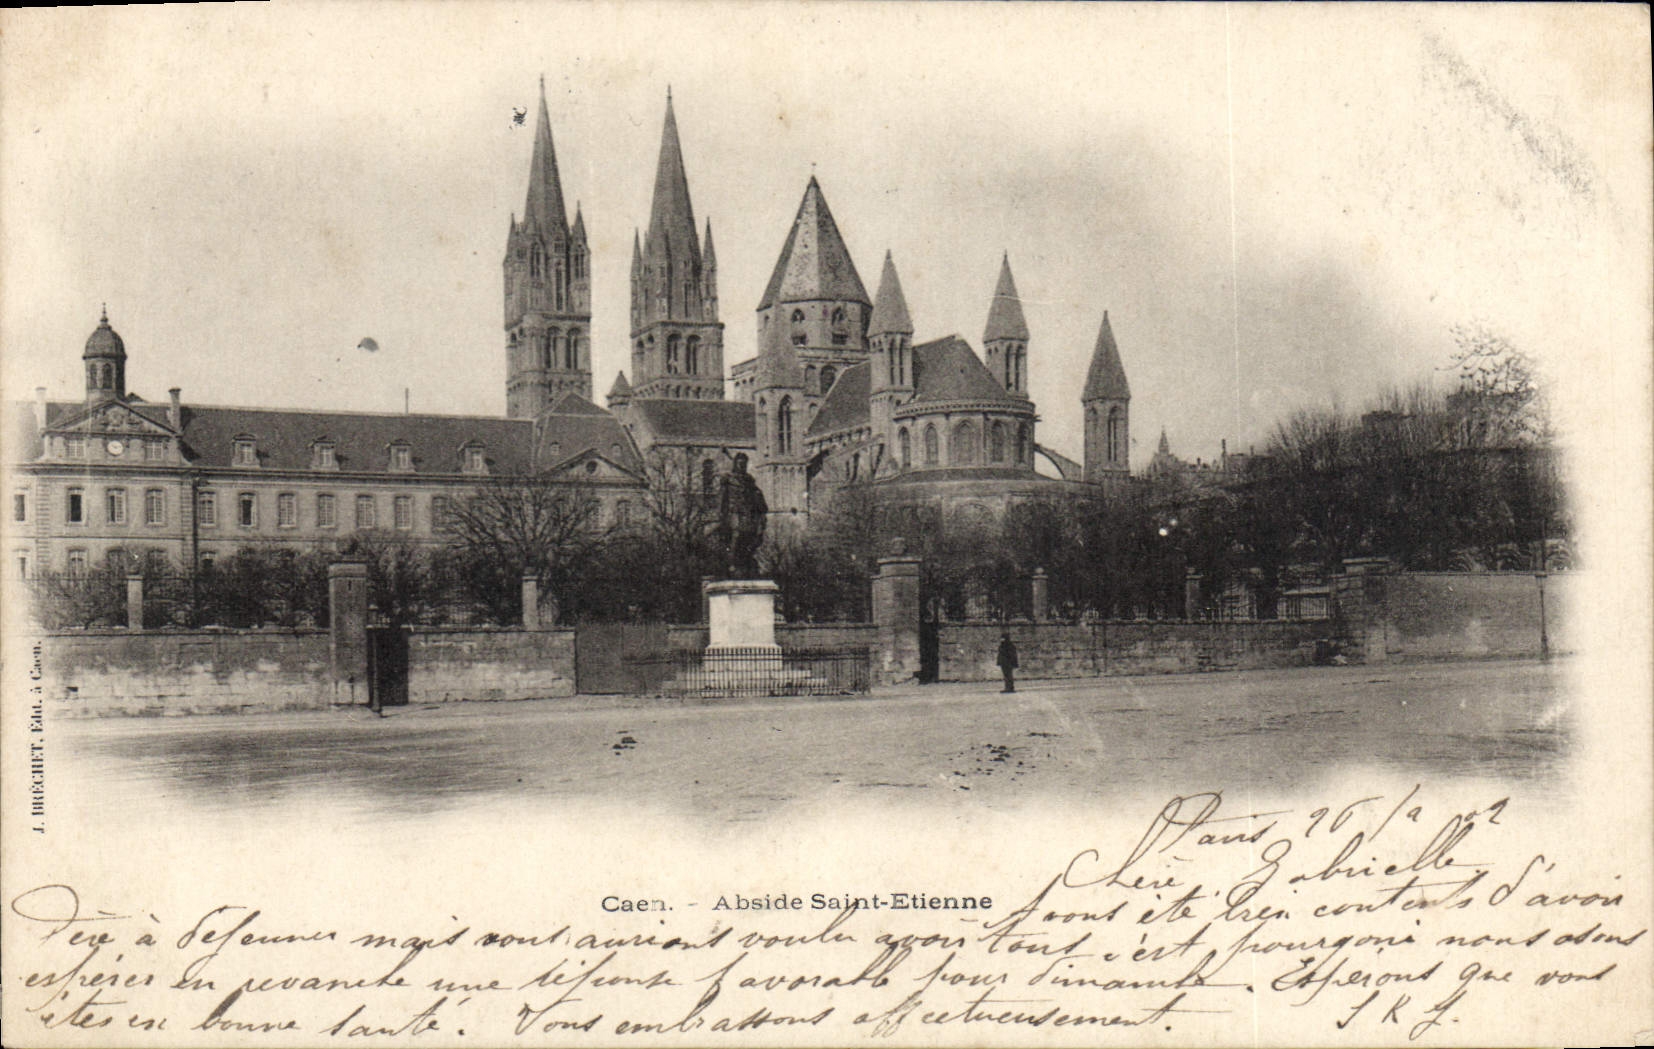 J. BRÉCHET, Édit. à Caen.
Caen. - Abside Saint-Etienne
Paris 26/9 02
Chère Gabrielle
Avons été très contents d'avoir
Père à déjeuner mais vous aurions voulu avoir tous c'est pourquoi nous osons
espérer en revanche une réponse favorable pour dimanche. Espérons que vous
êtes en bonne santé. Vous embrassons affectueusement.